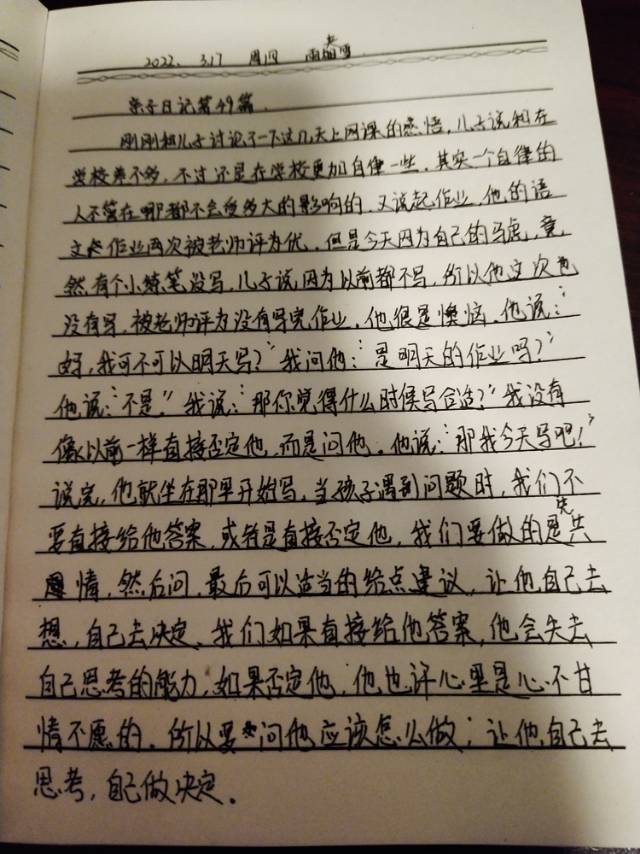 2022. 3.17 周四 雨夹雪
亲子日记第49篇
刚刚和儿子讨论了一下这几天上网课的感悟,儿子说和在
学校差不多,不过还是在学校更加自律一些,其实一个自律的
人不管在哪都不会受多大的影响的,又说起作业,他的语
文作业两次被老师评为优,但是今天因为自己的马虎,竟
然有个小练笔没写,儿子说因为以前都不写,所以他这次也
没有写,被老师评为没有写完作业,他很是懊恼,他说:“
妈,我可不可以明天写?”我问他:“是明天的作业吗?”
他说:“不是。”我说:“那你觉得什么时候写合适?”我没有
像以前一样直接否定他,而是问他。他说:“那我今天写吧!”
说完,他就坐在那里开始写,当孩子遇到问题时,我们不
要直接给他答案,或者是直接否定他,我们要做的是先共
情,然后问,最后可以适当的给点建议,让他自己去
想,自己去决定、我们如果直接给他答案,他会失去
自己思考的能力,如果否定他,他也许心里是心不甘
情不愿的。所以要问他应该怎么做;让他自己去
思考,自己做决定。